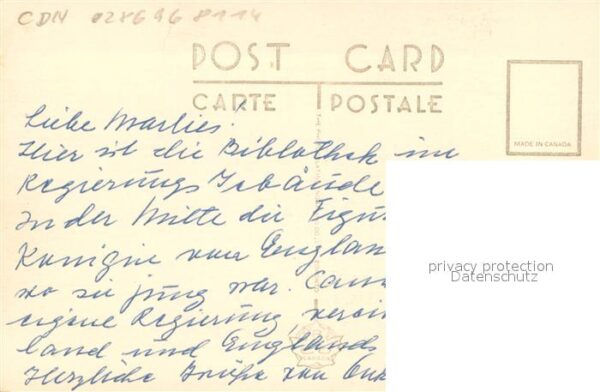 CDN 028696 8114
POST CARD
CARTE POSTALE
MADE IN CANADA
Liebe Marlies.
Hier ist die Bibliothek im
Regierungs Gebäude
In der Mitte die Figur
Königin von England
wo sie jung war.
eigene Regierung
land und Englands
Herzliche Grüße von
privacy protection
Datenschutz